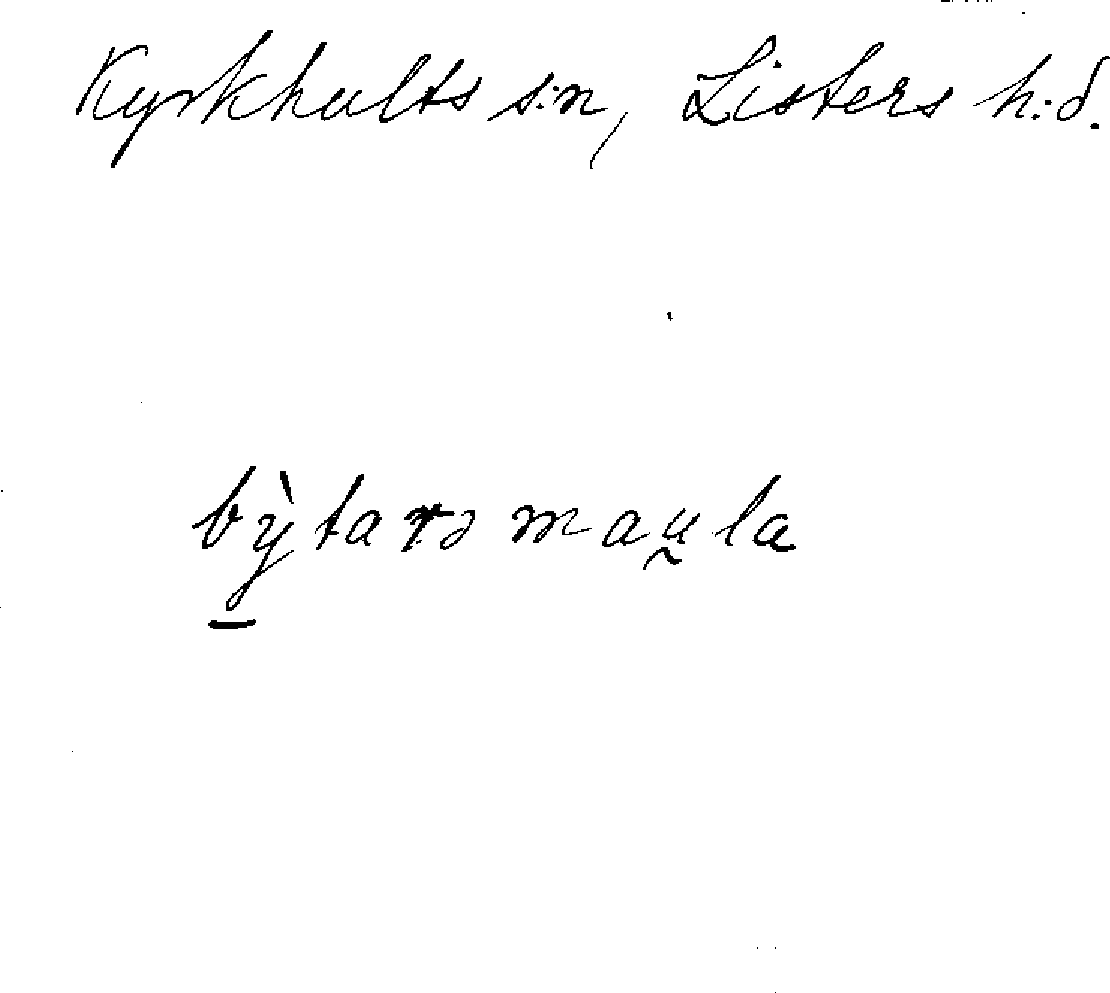 Kyrkhults s:n, Listers h:d.
bỳtarsmau̯la